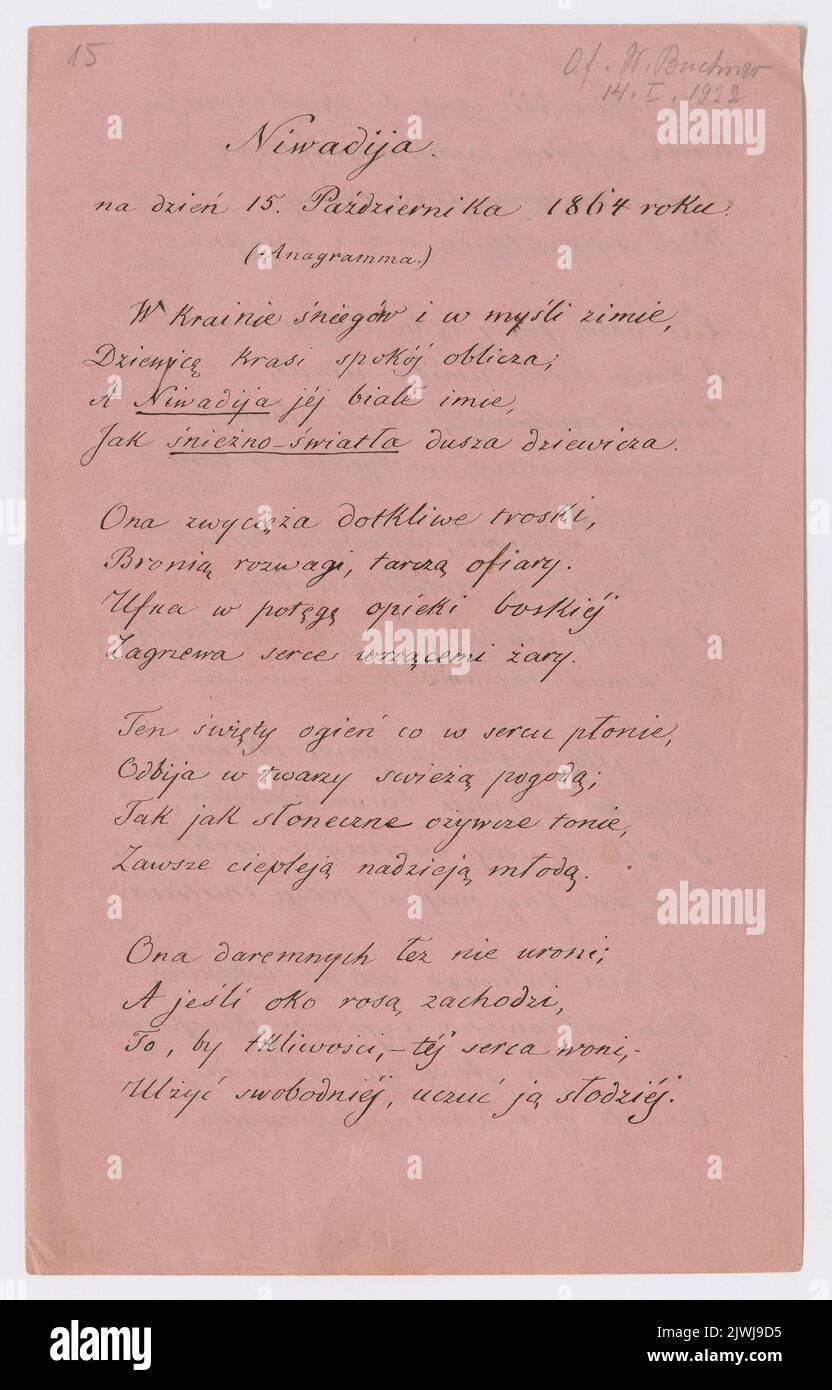 15
Of. W. Buchner
14. I. 1922
Niwadija.
na dzień 15. Października 1864 roku.
(Anagramma.)
W krainie śniegów i w myśli zimie,
Dziewicę krasi spokój oblicza;
A Niwadija jéj białe imie,
Jak śnieżno-światła dusza dziewicza.
Ona zwycięża dotkliwe troski,
Bronią rozwagi, tarczą ofiary.
Ufna w potęgę opieki boskiéj
Zagrzewa serce wrzącemi żary.
Ten święty ogień co w sercu płonie,
Odbija w twarzy swieżą pogodą;
Tak jak słoneczne ożywcze tonie,
Zawsze ciepleją nadzieją młodą.
Ona daremnych łez nie uroni;
A jeśli oko rosą zachodzi,
To, by tkliwości, – téj serca woni, –
Ulżyć swobodniéj, uczuć ją słodziéj.
alamy
Image ID: 2JWJ9D5
www.alamy.com